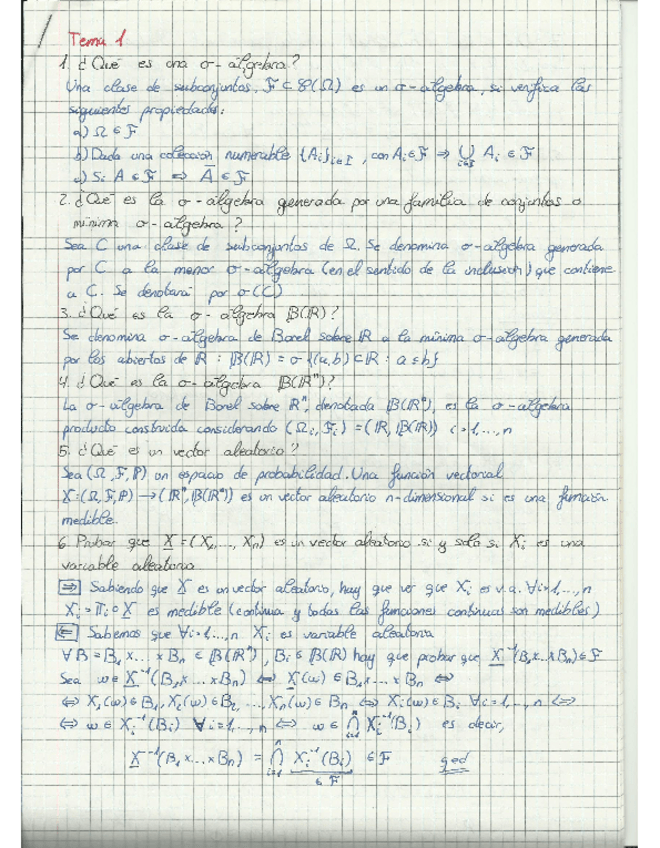 Tema 1
1. ¿Qué es una σ-álgebra?
Una clase de subconjuntos, F ⊂ P(Ω) es un σ-álgebra, si verifica las
siguientes propiedades:
a) Ω ∈ F
b) Dada una colección numerable {Ai}i∈I, con Ai ∈ F ⇒ ⋃i∈I Ai ∈ F
c) Si A ∈ F ⇔ A̅ ∈ F
2. ¿Qué es la σ-álgebra generada por una familia de conjuntos o
mínima σ-álgebra?
Sea C una clase de subconjuntos de Ω. Se denomina σ-álgebra generada
por C a la menor σ-álgebra (en el sentido de la inclusión) que contiene
a C. Se denotará por σ(C)
3. ¿Qué es la σ-álgebra B(ℝ)?
Se denomina σ-álgebra de Borel sobre ℝ a la mínima σ-álgebra generada
por los abiertos de ℝ: B(ℝ) = σ{(a,b) ⊂ ℝ : a ≤ b}
4. ¿Qué es la σ-álgebra B(ℝⁿ)?
La σ-álgebra de Borel sobre ℝⁿ, denotada B(ℝⁿ), es la σ-álgebra
producto construida considerando (Ωi, Fi) = (ℝ, B(ℝ)) i=1,...,n
5. ¿Qué es un vector aleatorio?
Sea (Ω, F, P) un espacio de probabilidad. Una función vectorial
X:(Ω, F, P) → (ℝⁿ, B(ℝⁿ)) es un vector aleatorio n-dimensional si es una función
medible.
6. Probar que X = (X₁,..., Xn) es un vector aleatorio si y solo si Xi es una
variable aleatoria
⇒ Sabiendo que X es un vector aleatorio, hay que ver que Xi es v.a. ∀i=1,...,n
Xi = Πi ∘ X es medible (continua y todas las funciones continuas son medibles)
⇐ Sabemos que ∀i=1,...,n Xi es variable aleatoria
∀B = B₁ x...x Bn ∈ B(ℝⁿ), Bi ∈ B(ℝ) hay que probar que X⁻¹(B₁x...xBn) ∈ F
Sea w ∈ X⁻¹(B₁x...xBn) ⇔ X(w) ∈ B₁x...xBn ⇔
⇔ X₁(w) ∈ B₁, X₂(w) ∈ B₂, ..., Xn(w) ∈ Bn ⇔ Xi(w) ∈ Bi ∀i=1,...,n ⇔
⇔ w ∈ Xi⁻¹(Bi) ∀i=1,...,n ⇔ w ∈ ⋂ⁿi=1 Xi⁻¹(Bi) es decir,
X⁻¹(B₁x...xBn) = ⋂ⁿi=1 Xi⁻¹(Bi) ∈ F qed
∈ F